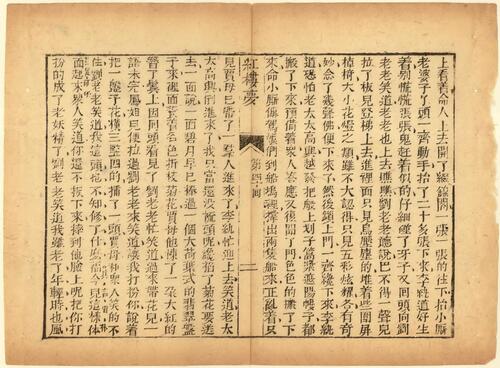 上看着命人上去開了綴錦閣一張一張的往下抬小廝
老婆子丫頭一齊動手抬了二十多張下來李紈道好生
着别慌慌張張鬼趕着似的仔細碰了牙子又回頭向劉
老老笑道老老也上去瞧瞧劉老老聽說巴不得一聲兒
拉了板兒登梯上去進裡面只見烏壓壓的堆着些圍屏
桌椅大小花燈之類雖不大認得只見五彩炫耀各有奇
妙念了幾聲佛便下來了然後鎖上門一齊纔下來李紈
道恐怕老太太高興越發把舡上划子篙槳遮陽幔子都
搬了下來預備着衆人答應又復開了門色色的搬了下
來命小廝傳駕娘們到船塢裡撐出兩隻船來正亂着只
紅樓夢 第四十回 二
見賈母已帶了一羣人進來了李紈忙迎上去笑道老太
太高興倒進來了我只當還沒梳頭呢纔掐了菊花要送
去一面說一面碧月早已捧過一個大荷葉式的翡翠盤
子來裡面養着各色折枝菊花賈母便揀了一朶大紅的
簪了鬢上因回頭看見了劉老老忙笑道過來帶花兒一
語未完鳳姐兒便拉過劉老老來笑道讓我打扮你說着
把一盤子花橫三豎四的插了一頭賈母和衆人笑的不
住劉老老笑道我這頭也不知修了什麽福今兒這樣體
面起來衆人笑道你還不拔下來摔到他臉上呢把你打
扮的成了老妖精了劉老老笑道我雖老了年輕時也風